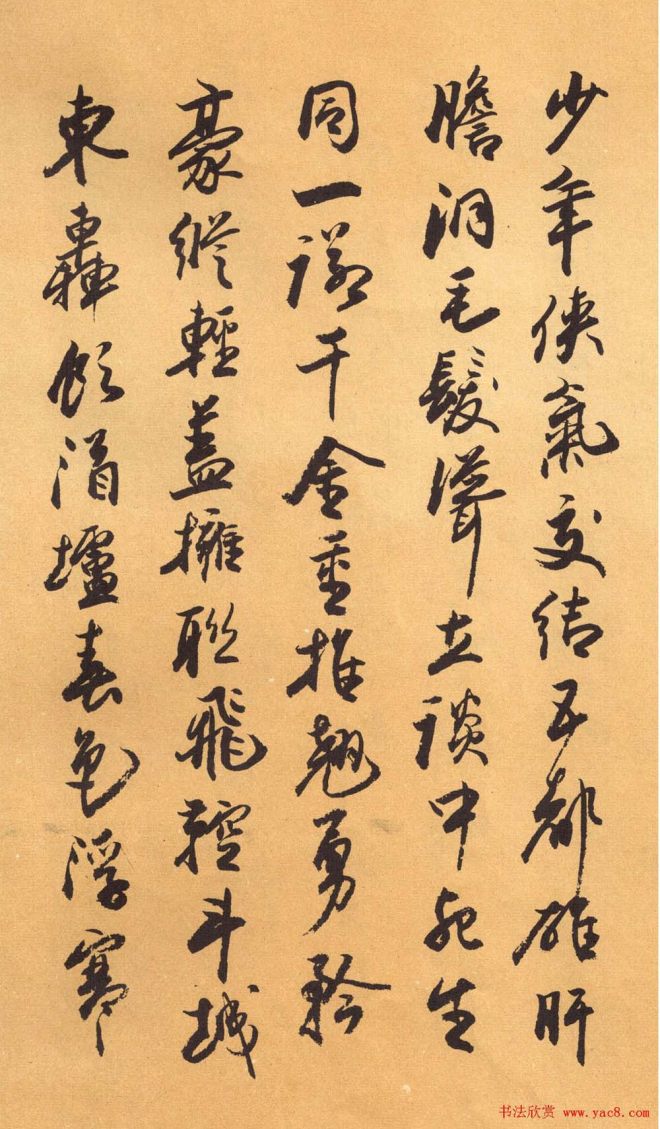 少年俠氣交結五都雄肝
膽洞毛髮聳立談中死生
同一諾千金重推翹勇矜
豪縱輕蓋擁聯飛鞚斗城
東轟飲酒壚春色浮寒
书法欣赏 www.yac8.com